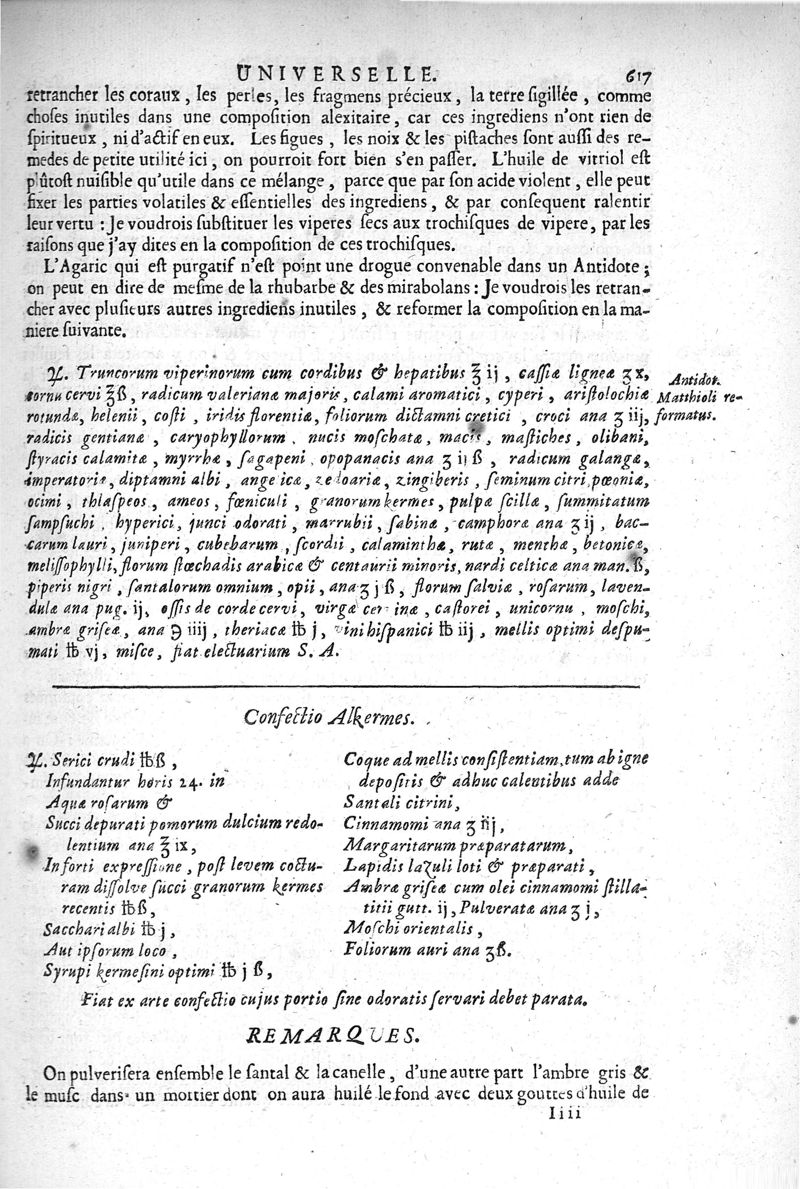 UNIVERSELLE. 617
retrancher les coraux, les perles, les fragmens précieux, la terre sigillée, comme
choses inutiles dans une composition alexitaire, car ces ingrediens n'ont rien de
spiritueux, ni d'actif en eux. Les figues, les noix & les pistaches sont aussi des re-
medes de petite utilité ici, on pourroit fort bien s'en passer. L'huile de vitriol est
plûtost nuisible qu'utile dans ce mélange, parce que par son acide violent, elle peut
fixer les parties volatiles & essentielles des ingrediens, & par consequent ralentir
leur vertu : Je voudrois substituer les viperes secs aux trochisques de vipere, par les
raisons que j'ay dites en la composition de ces trochisques.
L'Agaric qui est purgatif n'est point une drogue convenable dans un Antidote;
on peut en dire de mesme de la rhubarbe & des mirabolans : Je voudrois les retran-
cher avec plusieurs autres ingrediens inutiles, & reformer la composition en la ma-
niere suivante.
℞. Truncorum viperinorum cum cordibus & hepatibus ℥ ij, cassiæ ligneæ ʒ x,
cornu cervi ℥ß, radicum valerianæ majoris, calami aromatici, cyperi, aristolochiæ
rotundæ, helenii, costi, iridis florentiæ, foliorum dictamni cretici, croci ana ʒ iij,
radicis gentianæ, caryophyllorum, nucis moschatæ, macis, mastiches, olibani,
styracis calamitæ, myrrhæ, sagapeni, opopanacis ana ʒ ij ß, radicum galangæ,
imperatoriæ, diptamni albi, angelicæ, zedoariæ, zingiberis, seminum citri, pœoniæ,
ocimi, thlaspeos, ameos, fœniculi, granorum kermes, pulpæ scillæ, summitatum
sampsuchi, hyperici, junci odorati, marrubii, sabinæ, camphoræ ana ʒ ij, bac-
carum lauri, juniperi, cubebarum, scordii, calaminthæ, rutæ, menthæ, betonicæ,
melissophylli, florum stœchadis arabicæ & centaurii minoris, nardi celticæ ana man. ß,
piperis nigri, santalorum omnium, opii, ana ʒ j ß, florum salviæ, rosarum, laven-
dulæ ana pug. ij, ossis de corde cervi, virgæ cervinæ, castorei, unicornu, moschi,
ambræ griseæ, ana ℈ iiij, theriacæ ℔ j, vini hispanici ℔ iij, mellis optimi despu-
mati ℔ vj, misce, fiat electuarium S. A.
Antidot.
Matthioli re-
formatus.
Confectio Alkermes.
℞. Serici crudi ℔ß,
Infundantur horis 24. in
Aquæ rosarum &
Succi depurati pomorum dulcium redo-
lentium ana ℥ ix,
In forti expressione, post levem coctu-
ram dissolve succi granorum kermes
recentis ℔ß,
Sacchari albi ℔ j,
Aut ipsorum loco,
Syrupi kermesini optimi ℔ j ß,
Coque ad mellis consistentiam, tum ab igne
depositis & adhuc calentibus adde
Santali citrini,
Cinnamomi ana ʒ iij,
Margaritarum præparatarum,
Lapidis lazuli loti & præparati,
Ambræ griseæ cum olei cinnamomi stilla-
titii gutt. ij, Pulveratæ ana ʒ j,
Moschi orientalis,
Foliorum auri ana ʒß.
Fiat ex arte confectio cujus portio sine odoratis servari debet parata.
REMARQUES.
On pulverisera ensemble le santal & la canelle, d'une autre part l'ambre gris &
le musc dans un mortier dont on aura huilé le fond avec deux gouttes d'huile de
Iiii